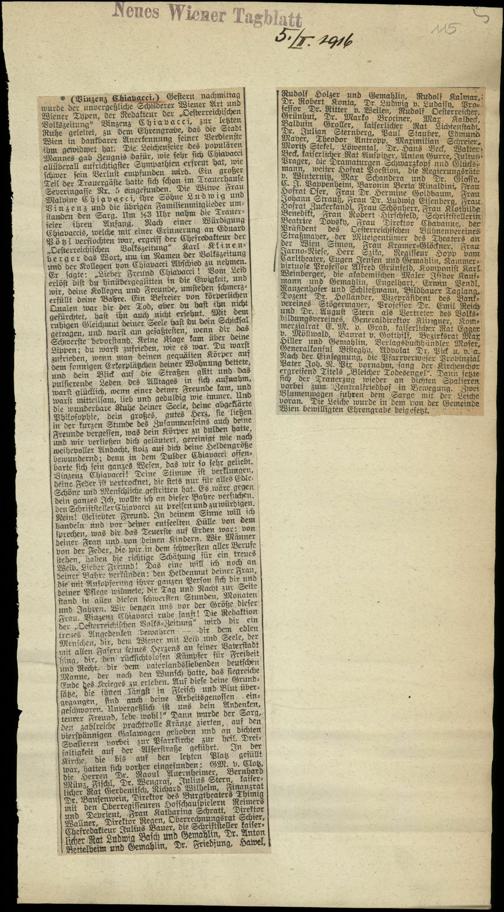 Neues Wiener Tagblatt
5./II. 1916
115
* (Vinzenz Chiavacci.) Gestern nachmittag
wurde der unvergeßliche Schilderer Wiener Art und
Wiener Typen, der Redakteur der „Oesterreichischen
Volkszeitung“ Vinzenz Chiavacci, zur letzten
Ruhe geleitet, zu dem Ehrengrabe, das die Stadt
Wien in dankbarer Anerkennung seiner Verdienste
ihm gewidmet hat. Die Leichenfeier des populären
Mannes gab Zeugnis dafür, wie sehr sich Chiavacci
allüberall aufrichtigster Sympathien erfreut hat, wie
schwer sein Verlust empfunden wird. Ein großer
Teil der Trauergäste hatte sich schon im Trauerhause
Severingasse Nr. 5 eingefunden. Die Witwe Frau
Malvine Chiavacci, ihre Söhne Ludwig und
Vinzenz und die übrigen Familienmitglieder um-
standen den Sarg. Um ½3 Uhr nahm die Trauer-
feier ihren Anfang. Nach einer Würdigung
Chiavaccis, welche mit einer Erinnerung an Eduard
Pötzl verflochten war, ergriff der Chefredakteur der
„Oesterreichischen Volkszeitung“ Karl Klinen-
berger das Wort, um im Namen der Volkszeitung
und der Kollegen von Chiavacci Abschied zu nehmen.
Er sagte: Lieber Freund Chiavacci! Vom Leid
erlöst bist du hinübergeglitten in die Ewigkeit, und
wir, deine Kollegen und Freunde, umstehen schmerz-
erfüllt deine Bahre. Ein Befreier von körperlichen
Qualen war dir der Tod, aber du hast ihn nicht
gefürchtet, hast ihn auch nicht ersehnt. Mit dem
ruhigen Gleichmut deiner Seele hast du dein Schicksal
getragen, und warst an gefaßtesten, wenn dir das
Schwerste bevorstand. Keine Klage kam über deine
Lippen; du warst zufrieden, wie es war. Du warst
zufrieden, wenn man deinen gequälten Körper auf
dem sonnigen Erkerplätzchen deiner Wohnung bettete,
und dein Blick auf die Straßen glitt und das
pulsierende Leben des Alltages in sich aufnahm,
warst glücklich, wenn einer deiner Freunde kam, und
warst mitteilsam, lieb und geduldig wie immer. Und
die wunderbare Ruhe deiner Seele, deine abgeklärte
Philosophie, dein großes, gutes Herz, sie ließen
in der kurzen Stunde des Zusammenseins auch deine
Freunde vergessen, was dein Körper zu dulden hatte,
und wir verließen dich geläutert, gereinigt wie nach
weihevoller Andacht, stolz auf dich, deine Heldengröße
bewundernd; denn in dem Dulder Chiavacci offen-
barte sich sein ganzes Wesen, das wir so sehr geliebt.
Vinzenz Chiavacci! Deine Stimme ist verklungen,
deine Feder ist vertrocknet, die stets nur für alles Edle,
Schöne und Menschliche gestritten hat. Es wäre gegen
dein ganzes Ich, wollte ich an dieser Bahre versuchen,
den Schriftsteller Chiavacci zu preisen und zu würdigen.
Nein! Geliebter Freund. In deinem Sinne will ich
handeln und vor deiner entseelten Hülle von dem
sprechen, was dir das Teuerste auf Erden war: von
deiner Frau und von deinen Kindern. Wir Männer
von der Feder, die wir in dem schwersten aller Berufe
stehen, haben die richtige Schätzung für ein treues
Weib. Lieber Freund! Das eine will ich noch an
deiner Bahre verkünden: den Heldenmut deiner Frau,
die mit Aufopferung ihrer ganzen Person sich dir und
deiner Pflege widmete, dir Tag und Nacht zur Seite
stand in allen diesen schwersten Stunden, Monaten
und Jahren. Wir beugen uns vor der Größe dieser
Frau. Vinzenz Chiavacci ruhe sanft! Die Redaktion
der „Oesterreichischen Volks-Zeitung“ wird dir ein
treues Angedenken bewahren — dir dem edlen
Menschen, dir, dem Wiener mit Leib und Seele, der
mit allen Fasern seines Herzens an seiner Vaterstadt
hing, dir, den rücksichtslosen Kämpfer für Freiheit
und Recht, dir dem vaterlandsliebenden deutschen
Manne, der noch den Wunsch hatte, das siegreiche
Ende des Krieges zu erleben. Auf diese deine Grund-
sätze, die ihnen längst in Fleisch und Blut über-
gegangen, sind auch deine Arbeitsgenossen ein-
geschworen. Unvergeßlich ist uns dein Andenken,
teurer Freund, lebe wohl!“ Dann wurde der Sarg,
den zahlreiche prachtvolle Kränze zierten, auf den
vierspännigen Galawagen gehoben und an dichten
Spalieren vorbei zur Pfarrkirche zur heil. Drei-
faltigkeit auf der Alserstraße geführt. In der
Kirche, die bis auf den letzten Platz gefüllt
war, hatten sich vorher eingefunden: GM. v. Clotz,
die Herren Dr. Raoul Auernheimer, Bernhard
Münz, Fischl, Dr. Wengraf, Julius Stern, kaiser-
licher Rat Gerdenitsch, Richard Wilhelm, Finanzrat
Dr. Bausenwei, Direktor des Burgtheaters Thimig
mit den Oberregisseuren Hofschauspielern Reimers
und Devrient, Frau Katharina Schratt, Direktor
Wallner, Direktor Regen, Oberrechnungsrat Schier,
Chefredakteur Julius Bauer, die Schriftsteller kaiser-
licher Rat Ludwig Basch und Gemahlin, Dr. Anton
Bettelheim und Gemahlin, Dr. Friedjung, Hawel,
Rudolf Holzer und Gemahlin, Rudolf Kalmar,
Dr. Robert Konta, Dr. Ludwig v. Ludassy, Pro-
fessor Dr. Ritter v. Wellov, Rudolf Oesterreicher,
Gründorf, Dr. Marko Brociner, Max Kalbeck,
Balduin Groller, kaiserlicher Rat Lichtenstadt,
Dr. Julian Sternberg, Paul Glauder, Edmund
Mayer, Theodor Antropp, Maximilian Schreier,
Moritz Stekel, Löwental, Dr. Hans Beck, Walter
Beck, kaiserlicher Rat Rusbitzer, Anton Gurre, Julius
Prager, die Dramaturgen Schwarzkopf und Glücks-
mann, weiter Hofrat Boetlin, die Regierungsräte
v. Winternitz, Max Schandera und Dr. Glossy,
C. F. Pappenheim, Baronin Berta Rinaldini, Frau
Hofrat Oser, Frau Dr. Hermine Goldbaum, Frau
Johann Strauß, Frau Dr. Ludwig Eisenberg, Frau
Hofrat Zuckerkandl, Frau Schönherr, Frau Klothilde
Benedikt, Frau Robert Hirschfeld, Schriftstellerin
Beatrice Dovsky, Frau Direktor Chavanne, der
Präsident des Oesterreichischen Bühnenvereines
Straßmayer, der Miteigentümer des Theaters an
der Wien Simon, Frau Kramer-Glöckner, Frau
Zarno-Niese, Herr Saka, Regisseur Hopp vom
Carltheater, Edgar Jensen und Gemahlin, Kammer-
virtuose Professor Alfred Grünfeld, Komponist Karl
Weinberger, die akademischen Maler Isidor Kauf-
mann und Gemahlin, Engelhart, Erwin Pendl,
Ranzenhofer und Schließmann, Bildhauer Taglang,
Dozent Dr. Hollander, Vizepräsident des Bank-
vereines Stögermayer, Professor Dr. Emil Reich
und Dr. August Stern als Vertreter des Volks-
bildungsvereines, Generaldirektor Flingner, Kom-
merzialrat E. M. v. Groh, kaiserlicher Rat Egger
v. Möllwald, Banrat v. Gottlieb, Bezirksrat Max
Hiller und Gemahlin, Verlagsbuchhändler Moser,
Generalkonsul Mestaghy, Advokat Dr. Pick u. v. a.
Nach der Einsegnung, die Pfarrverweser Kreditial
Pater Joh. N. Pir vornahm, sang der Kirchenchor
ergreifend Titls „Geistlicher Todesengel“. Dann setzte
sich der Trauerzug wieder an dichten Spalieren
vorbei zum Zentralfriedhof in Bewegung. Zwei
Blumenwagen fuhren dem Sarge mit der Leiche
voran. Die Leiche wurde in dem von der Gemeinde
Wien bewilligten Ehrengrabe beigesetzt.